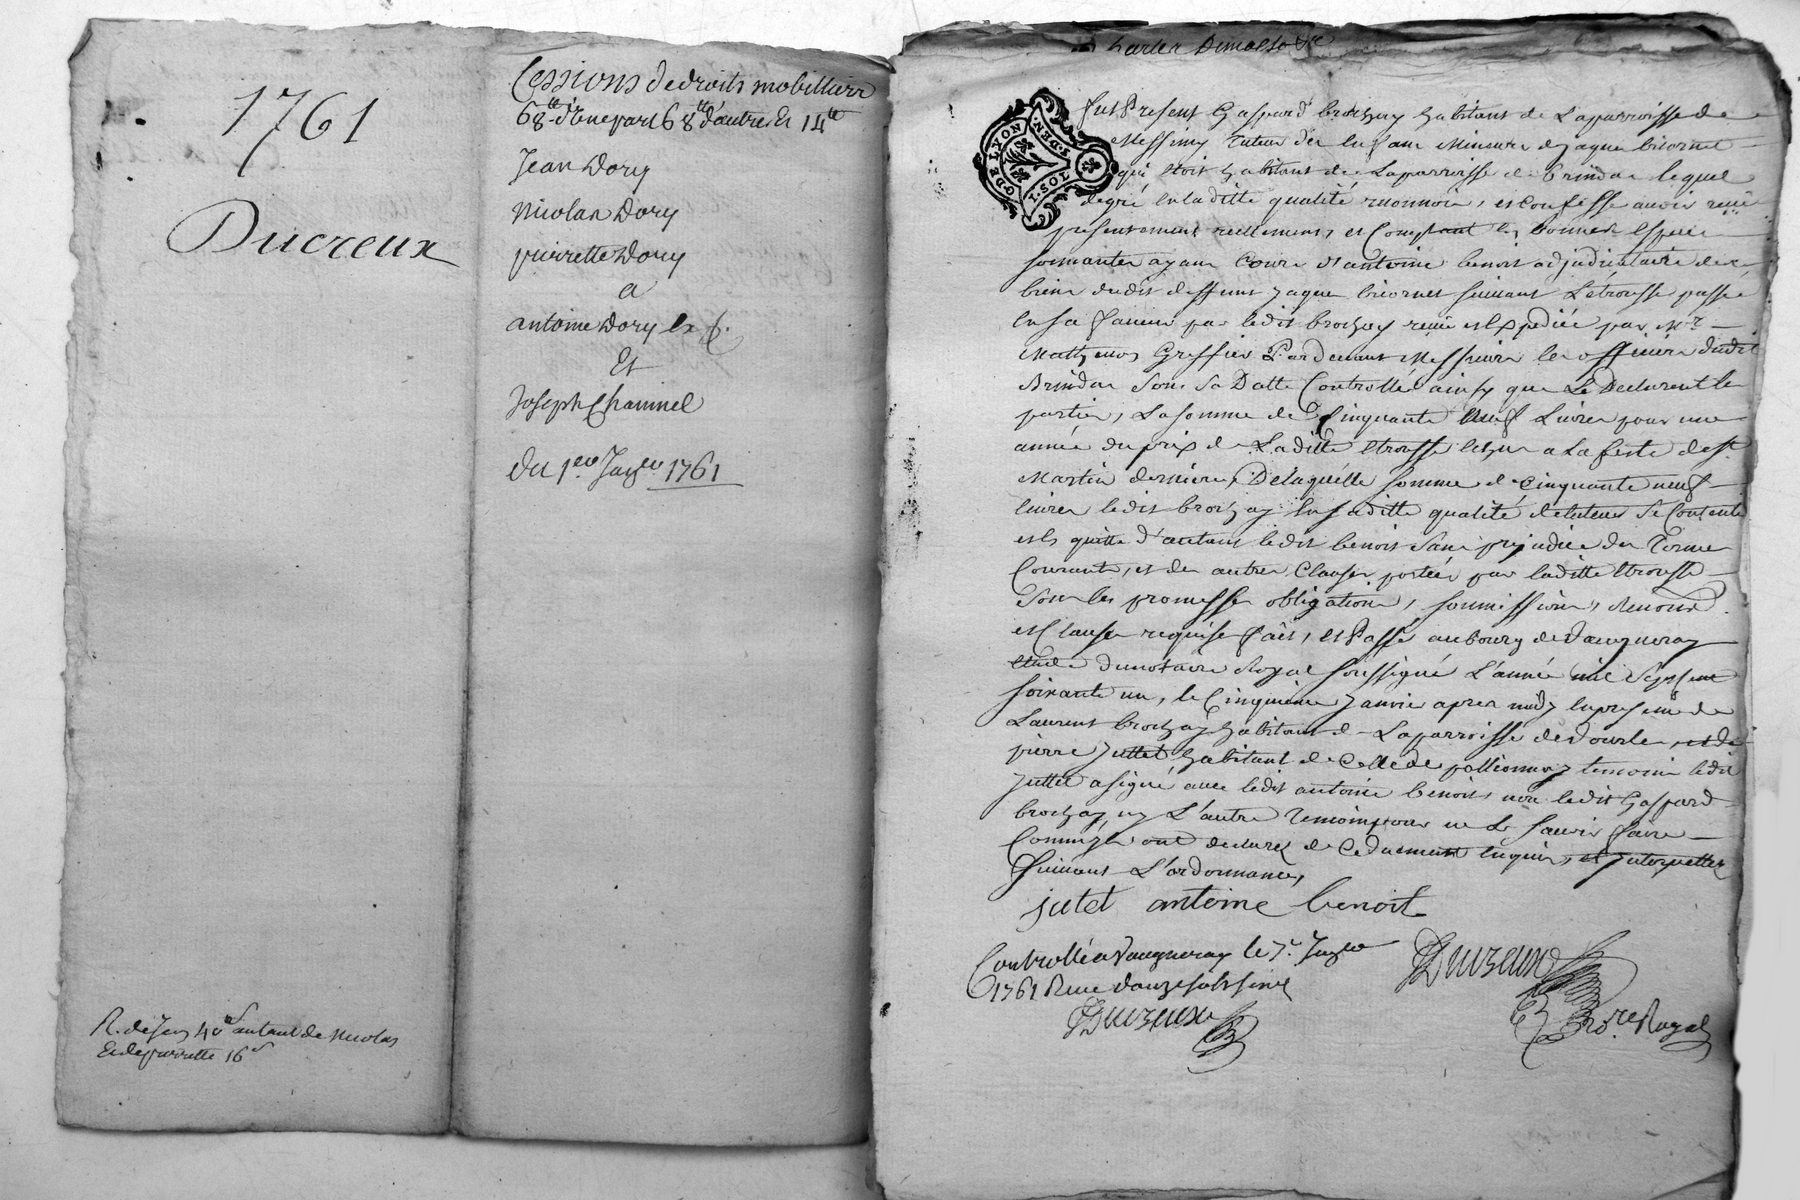 1761
Ducreux
R. de Jean 40s autant de Nicolas
Et de pierrette 16s
Cessions de droits mobilliers
68tt d'une part 68tt d'autre Et 14tt
Jean Dory
Nicolas Dory
pierrette Dory
a
antoine Dory
Et
Joseph Chamnel
du 1er Janer 1761
G. DE LYON
J. SOL
DEN.
fut Present Gaspard brochay habitant de Laparroisse de
Messimy Tuteur des Enfans Mineurs de Jaques bicornet
qui Etoit habitant de Laparroisse de brindas lequel
degré En la ditte qualité reconnoit, et Confesse avoir reçu
presentement reellement, et Comptant En bonnes Especes
sonnantes ayant Cours d'antoine benoit adjudicataire des
biens dudit deffunt Jaques bicornet suivant L'étrousse passée
En sa faveur par ledit brochay reçue et Expediée par Mr
Mathevos Greffier Pardevant Messieurs les officiers dudit
Brindas Sous Sa Datte Controllée ainsy que Le Declarent les
parties, La somme de Cinquante neuf Livres pour une
année du prix de Laditte Etrousse Echue a La feste de St
Martin derniere, De laquelle somme de Cinquante neuf
livres ledit brochay En saditte qualité de tuteur Se Contente
et En quitte d'autant ledit benoit Sans prejudice du Terme
Courant, et des autres Clauses portées par laditte Etrousse
Sous les promesses obligations, soumissions, Renond.
et Clauses requises fait, et Passé au bourg de Vaugneray
Etude du notaire Royal soussigné L'année mil Sept Cent
soixante un, le Cinquieme Janvier apres midy En presence de
Laurent brochay habitant de Laparroisse de Vourles, et de
pierre Juttet habitant de Celle de pollionnay temoins ledit
Juttet a signé avec ledit antoine benoit, non ledit Gaspard
brochay, ny L'autre Temoin pour ne Le Scavoir faire
Comme ils ont declaré de Ce duement Enquis, et Interpellés
suivant L'ordonnance,
jutet antoine benoit
Controllé a Vaugneray le 7e Janer
1761 Reçu douze sols six d
Ducreux
Ducreux
Nore Royal